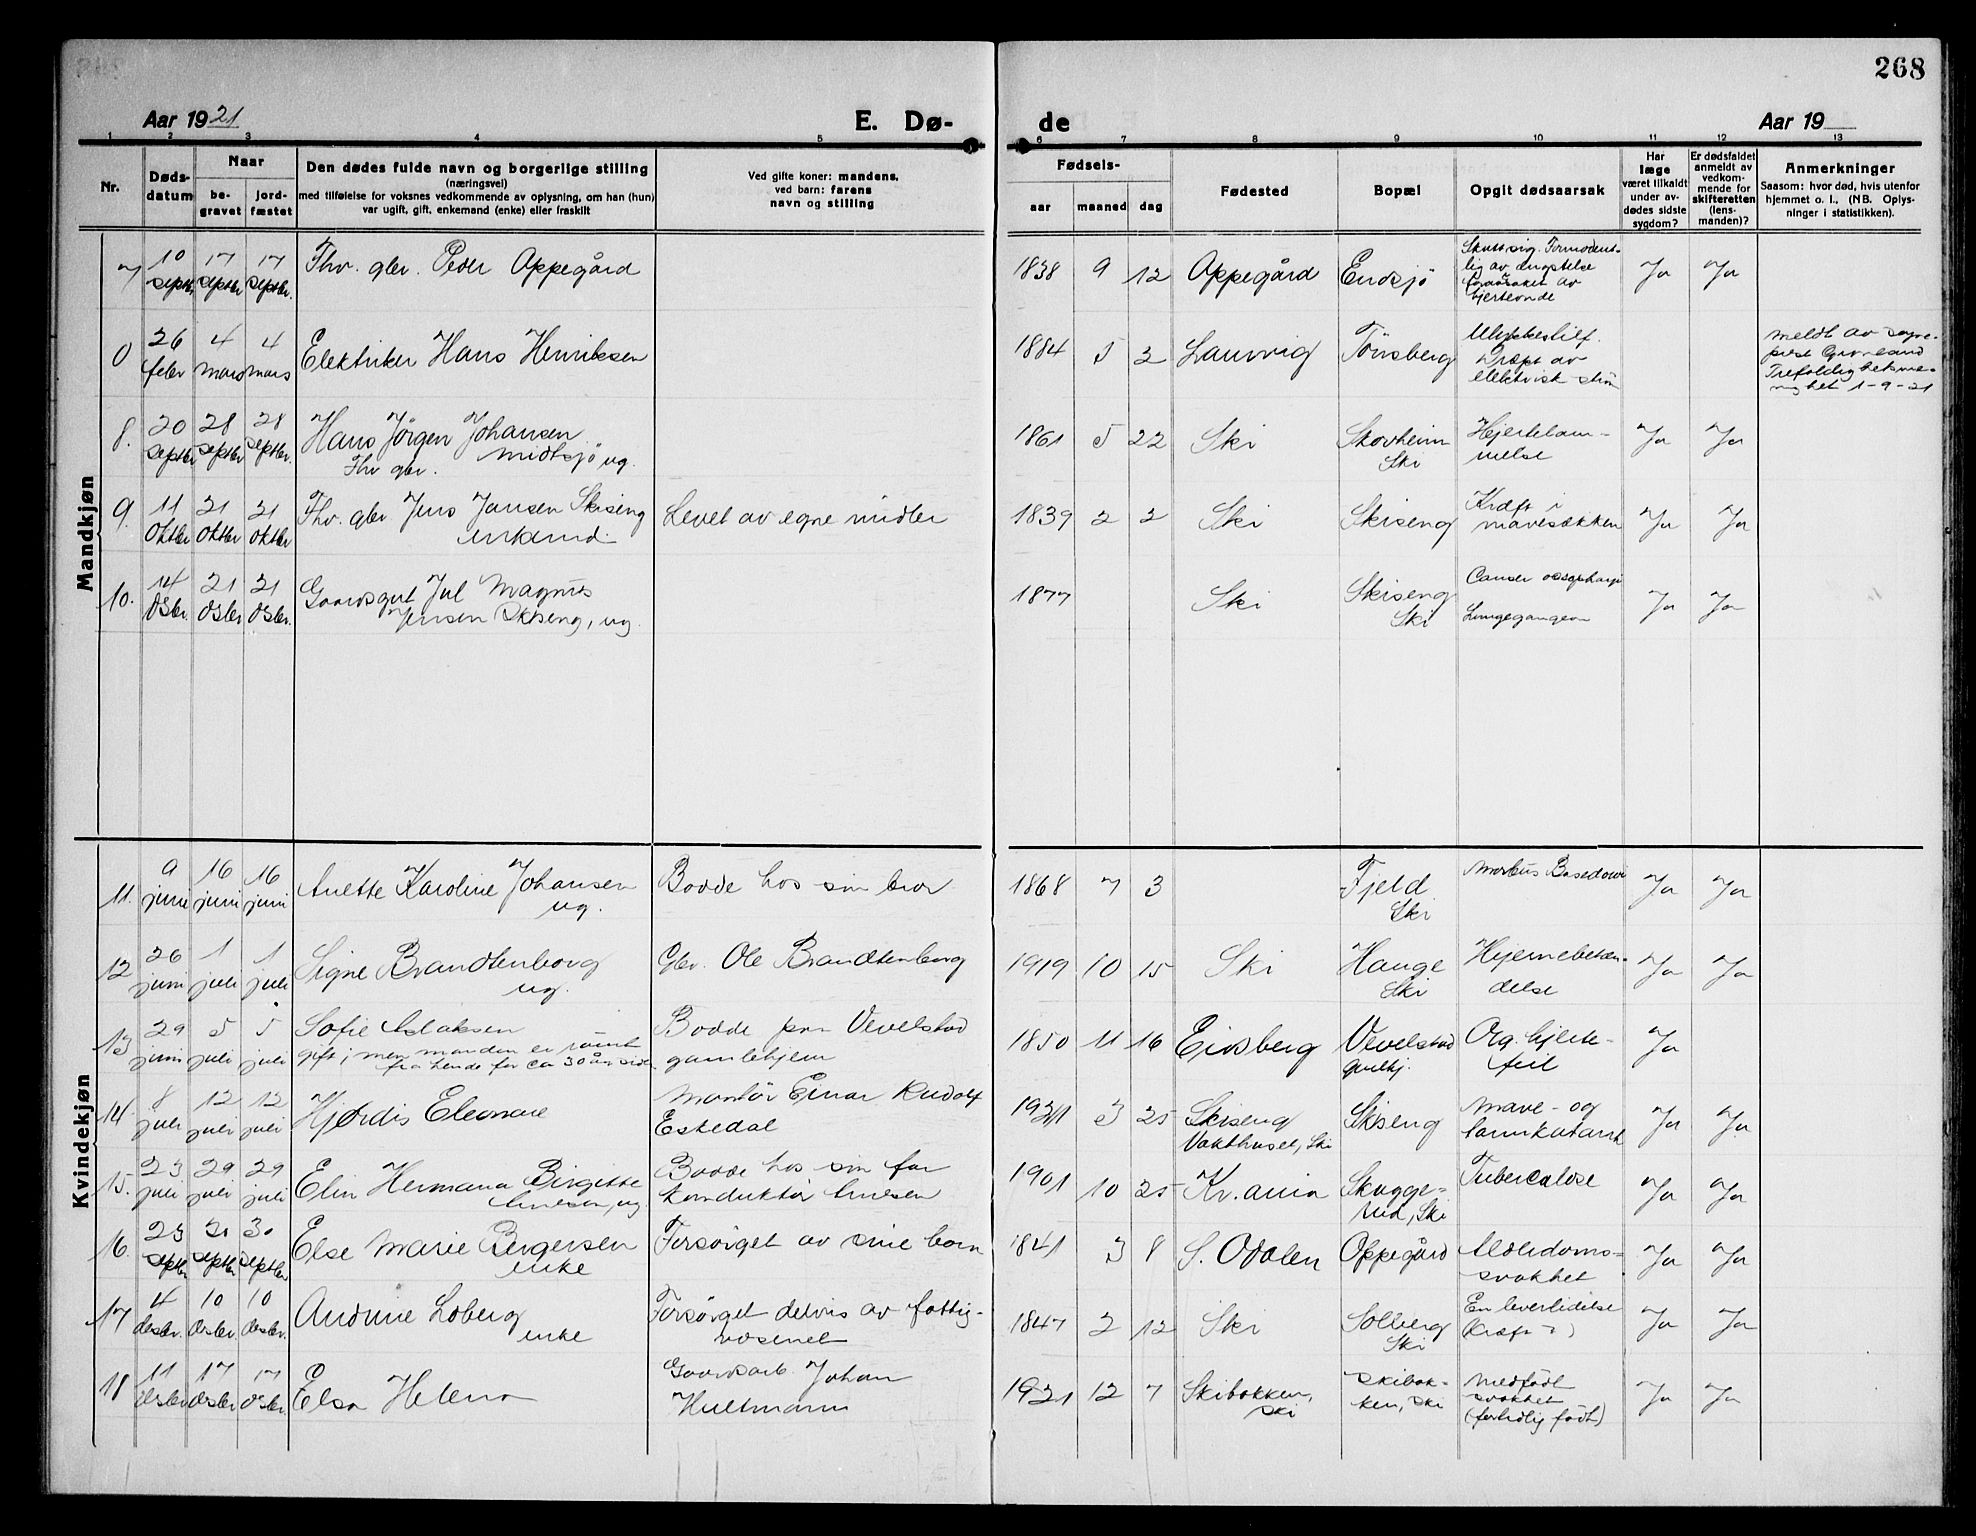 268
Aar 1921
E. Dø-
de
Aar 19
1 2 3 4 5 6 7 8 9 10 11 12 13
Nr.
Døds-
datum
Naar
be-
gravet
jord-
fæstet
Den dødes fulde navn og borgerlige stilling
(næringsvei)
med tilføielse for voksnes vedkommende av oplysning, om han (hun)
var ugift, gift, enkemand (enke) eller fraskilt
Ved gifte koner: mandens,
ved barn: farens
navn og stilling
Fødsels-
aar
maaned
dag
Fødested
Bopæl
Opgit dødsaarsak
Har
læge
været tilkaldt
under av-
dødes sidste
sygdom?
Er dødsfaldet
anmeldt av
vedkom-
mende for
skifteretten
(lens-
manden)?
Anmerkninger
Saasom: hvor død, hvis utenfor
hjemmet o. l., (NB. Oplys-
ninger i statistikken).
Mandkjøn
7 10 septbr 17 septbr 17 septbr. Fhv. gbr. Peder Oppegård
1838 9 12 Oppegård Endsjø
lig av ængstelse
foraarsaket av
hjerteonde
Ja Ja
0 26 febr 4 mars 4 mars Elektriker Hans Henriksen
1884 5 2 Laurvig Tønsberg Ulykkestilf.
Dræpt av
elektrisk strøm
meldt av sogne-
prest Grønland
Trefoldighetsme-
nighet 1-9-21
8. 20 septbr 28 septbr 28 septbr. Hans Jørgen Johansen
Midtsjø ug.
Fhv gbr.
1861 5 22 Ski Skovheim
Ski
Hjertelam-
melse
Ja Ja
9. 11 Oktbr 21 Oktbr 21 Oktbr Fhv. gbr Jens Jansen Skiseng
enkemd.
Levet av egne midler
1839 2 2 Ski Skiseng Kræft i
mavesækken
Ja Ja
10. 14 21 21 Gaardsgut Jul Magnus
Jensen Skiseng, ug.
1877 Ski Skiseng
Ski
Cancer
Lungegangren
Ja Ja
Kvindekjøn
11. 9 juni 16 juni 16 juni Anette Karoline Johansen
ug.
Bodde hos sin bror
1868 7 3 Fjeld
Ski
Morbus Basedowi
Ja Ja
12 26 juni 1 juli 1 juli Signe Brandtenborg
ug.
Gbr. Ole Brandtenborg
1919 10 15 Ski Hauge
Ski
Hjernebetæn-
delse
Ja Ja
13 29 juni 5 juli 5 juli Sofie Aslaksen
gift, men manden er rømt
fra hende for ca 30 år sid.
Bodde paa Vevelstad
gamlehjem
1850 11 16 Eidsberg Vevelstad
gmlhj.
Org. hjerte-
feil
Ja
14. 8 juli 12 juli 12 juli Hjørdis Eleonore
Montør Einar Rudolf
Eskedal
1921 3 25 Skiseng
Vakthuset, Ski
Skiseng
Mave- og
tarmkatarrh
Ja Ja
15. 23 juli 29 juli 29 juli Elin Hermana Birgitte
Arnesen, ug.
Bodde hos sin far
konduktør Arnesen
1901 10 25 Kr.ania Skugge-
rud, Ski
Tuberculose
Ja Ja
16. 23 septbr 30 septbr 30 septbr Else Marie Børgersen
enke
Forsørget av sine born
1841 3 8 S. Odalen Oppegård Alderdoms-
svakhet
Ja Ja
17 4 desbr. 10 desbr. 10 desbr. Andrine Loberg
enke
Forsørget delvis av fattig-
væsenet
1847 2 12 Ski Solberg
Ski
En leverlidelse
(Kræft?)
Ja Ja
18 11 desbr 17 desbr 17 desbr. Elsa Helena
Gaardsarb. Johan
Hultmann
1921 12 7 Skibakken,
Ski
Skibak-
ken, Ski
Medfødt
svakhet
(fortidlig født)
Ja Ja